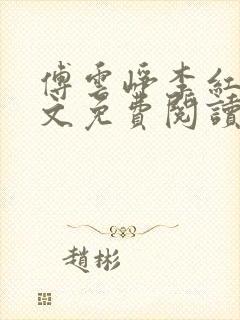 傅雲崢李紅
文免費閱讀
趙彬